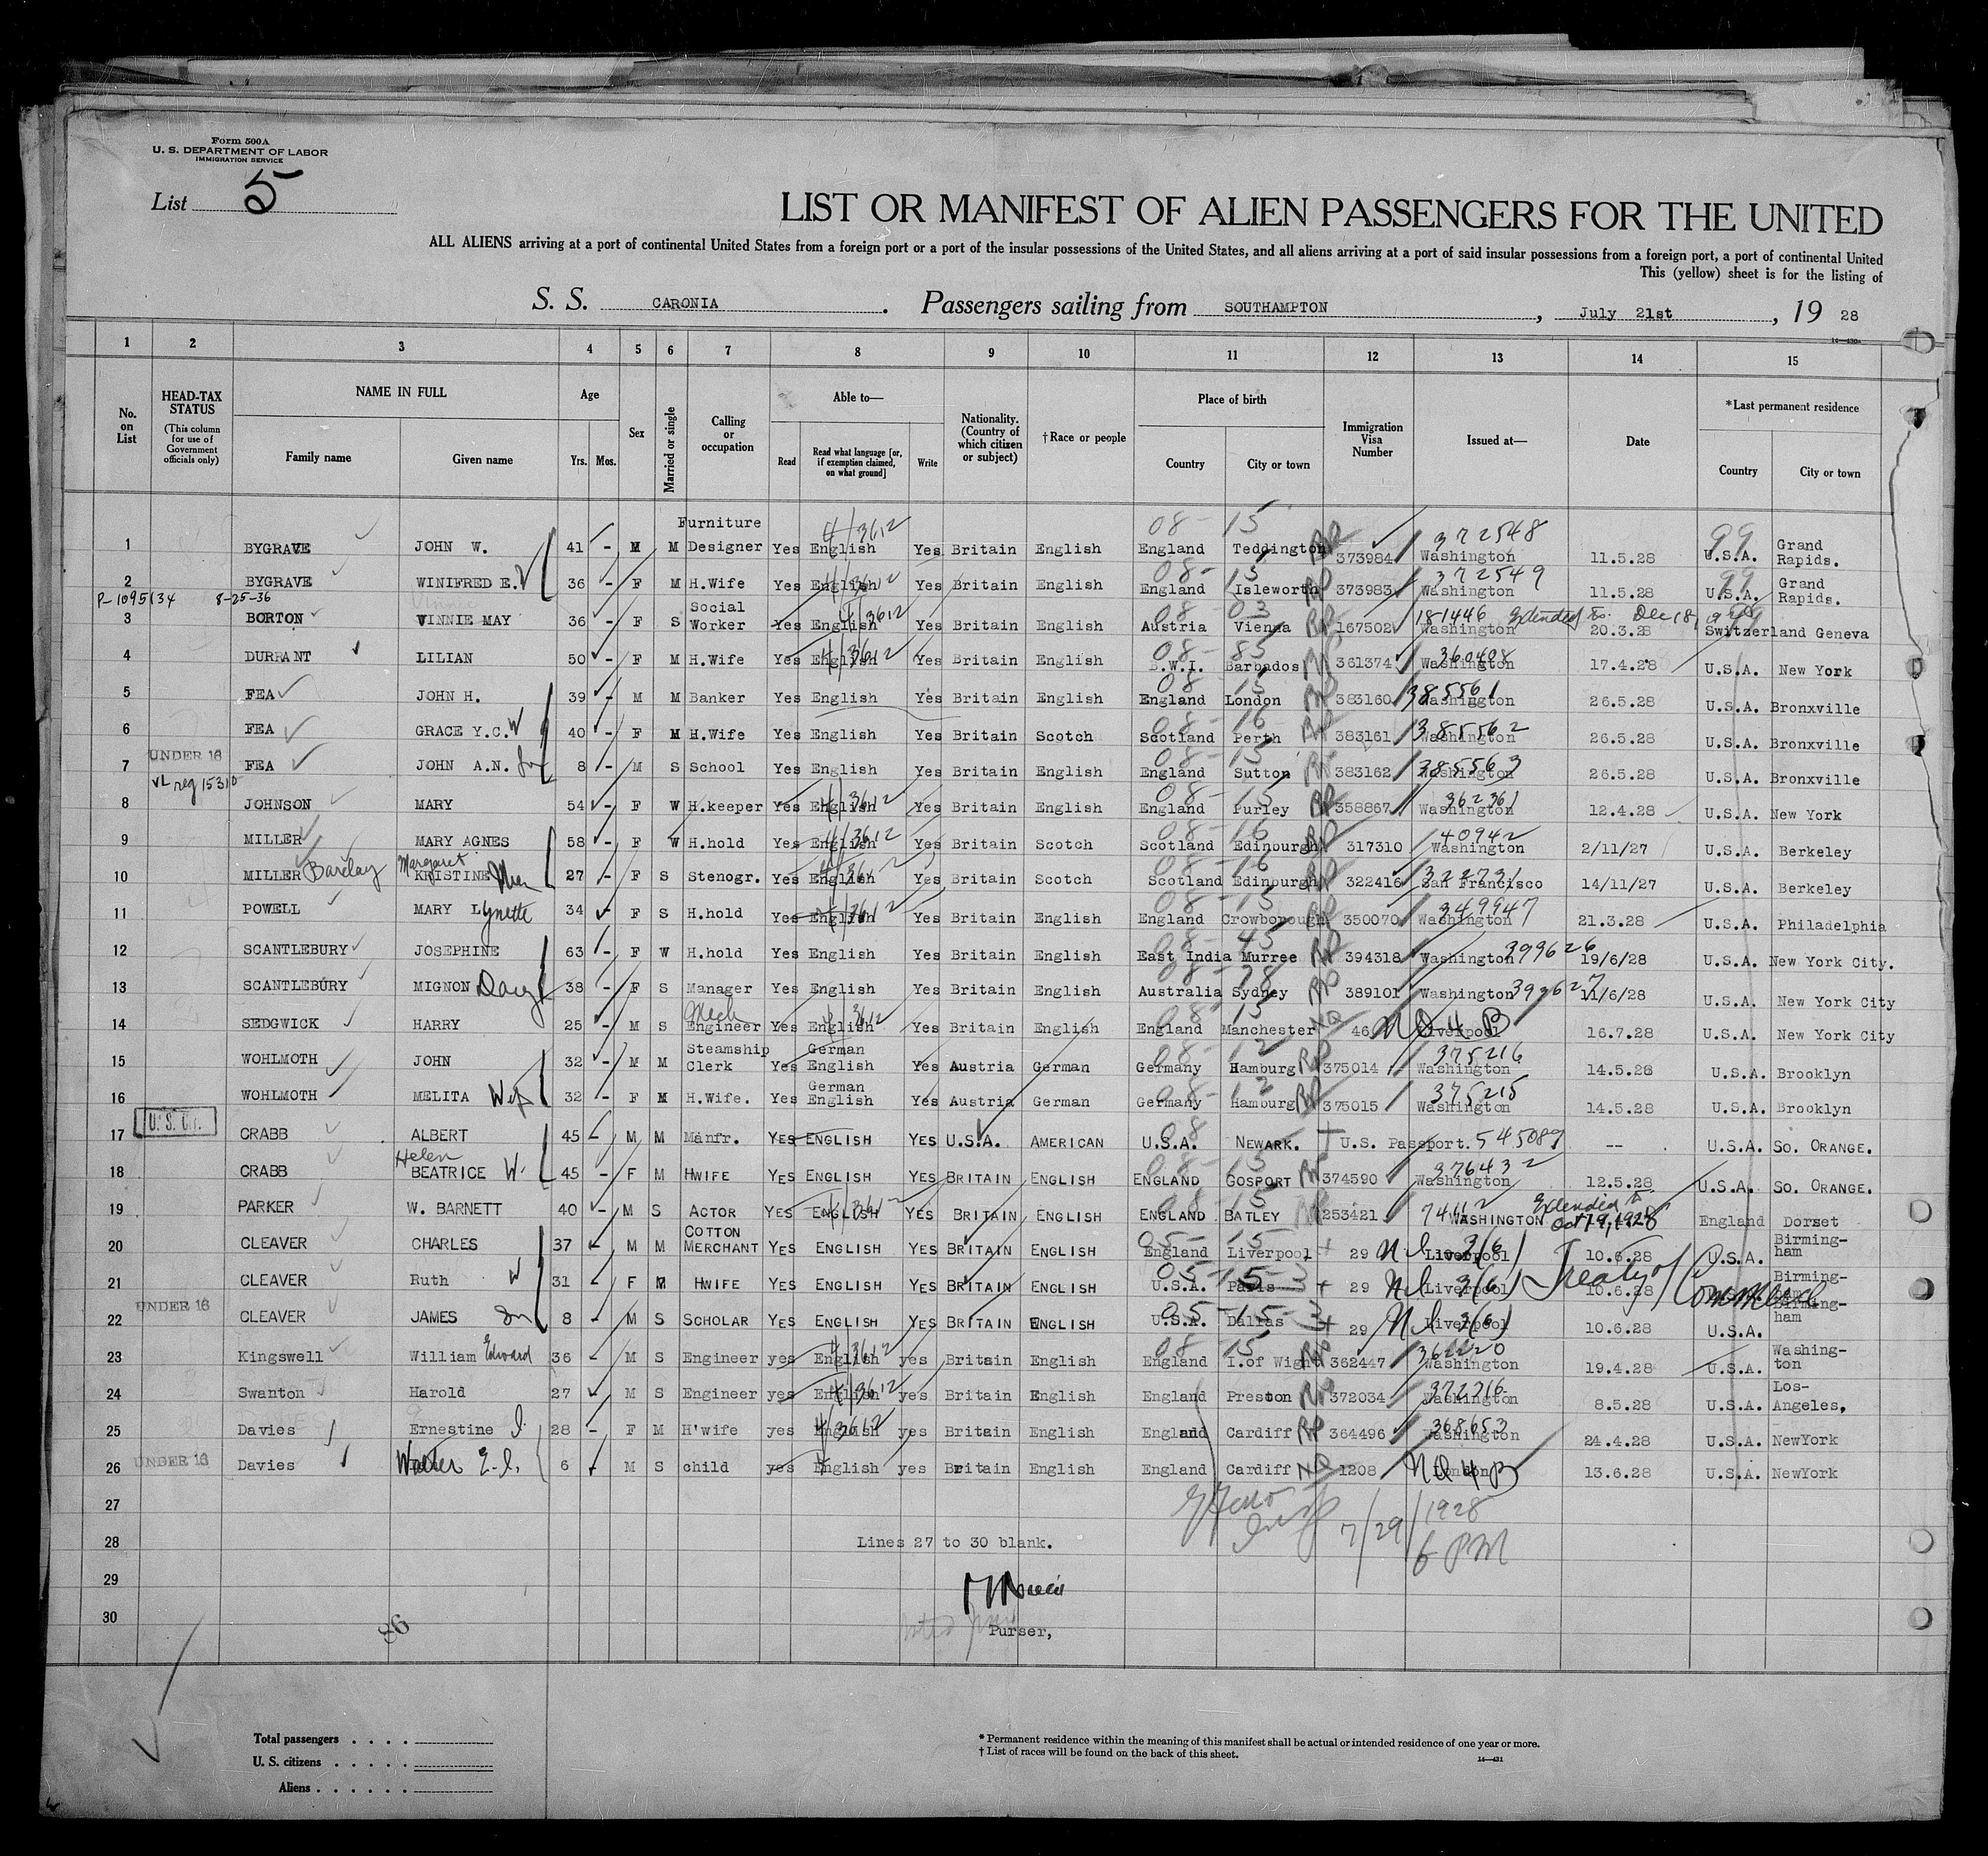 Form 500A
U. S. DEPARTMENT OF LABOR
IMMIGRATION SERVICE
List 5
LIST OR MANIFEST OF ALIEN PASSENGERS FOR THE UNITED
ALL ALIENS arriving at a port of continental United States from a foreign port or a port of the insular possessions of the United States, and all aliens arriving at a port of said insular possessions from a foreign port, a port of continental United
This (yellow) sheet is for the listing of
S. S. CARONIA. Passengers sailing from SOUTHAMPTON, July 21st, 19 28
1 2 3 4 5 6 7 8 9 10 11 12 13 14 15
No. on List
HEAD-TAX STATUS (This column for use of Government officials only)
NAME IN FULL Family name Given name
Age Yrs. Mos.
Sex
Married or single
Calling or occupation
Able to— Read Read what language [or, if exemption claimed, on what ground] Write
Nationality. (Country of which citizen or subject)
†Race or people
Place of birth Country City or town
Immigration Visa Number
Issued at—
Date
*Last permanent residence Country City or town
1 BYGRAVE JOHN W. 41 - M M Furniture Designer Yes English 4/3612 Yes Britain English England Teddington 08-15 373984 372548 Washington 11.5.28 99 U.S.A. Grand Rapids.
2 BYGRAVE WINIFRED E. W 36 - F M H.Wife Yes English 4/3612 Yes Britain English England Isleworth 08-15 373983 372549 Washington 11.5.28 99 U.S.A. Grand Rapids.
P-1095134 8-25-36
3 BORTON VINNIE MAY 36 - F S Social Worker Yes English 4/3612 Yes Britain English Austria Vienna 08-03 167502 181446 Washington Extended to Dec 18, 20.3.28 Switzerland Geneva
4 DURRANT LILIAN 50 - F M H.Wife Yes English 4/3612 Yes Britain English B.W.I. Barbados 08-85 361374 360408 Washington 17.4.28 U.S.A. New York
5 FEA JOHN H. 39 - M M Banker Yes English Yes Britain English England London 08 15 383160 385561 Washington 26.5.28 U.S.A. Bronxville
6 FEA GRACE Y.C. W 40 - F M H.Wife Yes English Yes Britain Scotch Scotland Perth 08-16 383161 385562 Washington 26.5.28 U.S.A. Bronxville
UNDER 16
7 FEA JOHN A.N. Sn 8 - M S School Yes English Yes Britain English England Sutton 08-15 383162 385563 Washington 26.5.28 U.S.A. Bronxville
VL reg 15310
8 JOHNSON MARY 54 - F W H.keeper Yes English 4/3612 Yes Britain English England Purley 08-15 358867 362361 Washington 12.4.28 U.S.A. New York
9 MILLER MARY AGNES 58 - F W H.hold Yes English 4/3612 Yes Britain Scotch Scotland Edinburgh 08-16 317310 40942 Washington 2/11/27 U.S.A. Berkeley
10 MILLER Barclay Margaret KRISTINE 27 - F S Stenogr. Yes English Yes Britain Scotch Scotland Edinburgh 08-16 322416 San Francisco 14/11/27 U.S.A. Berkeley
11 POWELL MARY Lynette 34 - F S H.hold Yes English 4/3612 Yes Britain English England Crowborough 08-15 350070 349947 Washington 21.3.28 U.S.A. Philadelphia
12 SCANTLEBURY JOSEPHINE 63 - F W H.hold Yes English Yes Britain English East India Murree 08-45 394318 Washington 399626 19/6/28 U.S.A. New York City.
13 SCANTLEBURY MIGNON 38 - F S Manager Yes English Yes Britain English Australia Sydney 08-78 389101 Washington 399627 11/6/28 U.S.A. New York City
14 SEDGWICK HARRY 25 - M S Mech Engineer Yes English 4/3612 Yes Britain English England Manchester 08 15 46 NQ 4 B Liverpool 16.7.28 U.S.A. New York City
15 WOHLMOTH JOHN 32 - M M Steamship Clerk Yes German English Yes Austria German Germany Hamburg 08-12 375014 375216 Washington 14.5.28 U.S.A. Brooklyn
16 WOHLMOTH MELITA Wife 32 - F M H.Wife. Yes German English Yes Austria German Germany Hamburg 08-12 375015 375215 Washington 14.5.28 U.S.A. Brooklyn
17 CRABB ALBERT 45 - M M Manfr. YES ENGLISH YES U.S.A. AMERICAN U.S.A. NEWARK. 08 U.S. Passport. 545089 -- U.S.A. SO. ORANGE.
18 CRABB Helen BEATRICE W. 45 - F M HWIFE YES ENGLISH YES BRITAIN ENGLISH ENGLAND GOSPORT 08-15 374590 376432 Washington 12.5.28 U.S.A. SO. ORANGE.
19 PARKER W. BARNETT 40 - M S ACTOR YES ENGLISH 4/3612 YES BRITAIN ENGLISH ENGLAND BATLEY 08-15 253421 WASHINGTON Extended to Oct 19, 1928 England Dorset
20 CLEAVER CHARLES 37 - M M COTTON MERCHANT YES ENGLISH YES BRITAIN ENGLISH England Liverpool 05-15 29 3(6) Liverpool 10.6.28 U.S.A. Birming-ham
21 CLEAVER Ruth W 31 - F M HWIFE YES ENGLISH YES BRITAIN ENGLISH U.S.A. Paris 05-15-3 29 3(6) Liverpool Treaty of Commerce 10.6.28 Birming-
UNDER 16
22 CLEAVER JAMES Sn 8 - M S SCHOLAR YES ENGLISH YES BRITAIN ENGLISH U.S.A. Dallas 05-15-3 29 3(6) Liverpool 10.6.28 U.S.A. Birming-ham
23 Kingswell William Edward 36 - M S Engineer yes English 4/3612 yes Britain English England I.of Wight 08 15 362447 362220 Washington 19.4.28 U.S.A. Washing-ton
24 Swanton Harold 27 - M S Engineer yes English 4/3612 yes Britain English England Preston 372034 372716 Washington 8.5.28 U.S.A. Los-Angeles,
25 Davies Ernestine I. 28 - F M H'wife yes English 4/3612 yes Britain English England Cardiff 364496 368653 Washington 24.4.28 U.S.A. NewYork
UNDER 16
26 Davies Walter E.I. 6 - M S child yes English yes Britain English England Cardiff NQ 1208 NQ 4 B London 13.6.28 U.S.A. NewYork
27
7/29/1928
28 Lines 27 to 30 blank. 6 PM
29
30
Purser,
86
Total passengers
U. S. citizens
Aliens
* Permanent residence within the meaning of this manifest shall be actual or intended residence of one year or more.
† List of races will be found on the back of this sheet.
14—431